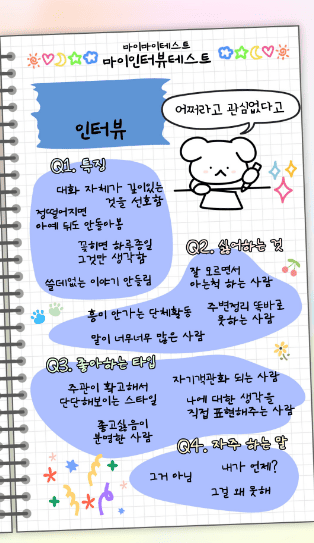 마이마이테스트
마이인터뷰테스트
어쩌라고 관심없다고
인터뷰
Q1. 특징
대화 자체가 깊이있는
것을 선호함
정떨어지면
아예 뒤도 안돌아봄
꽂히면 하루종일
그것만 생각함
쓸데없는 이야기 안들림
Q2. 싫어하는 것
잘 모르면서
아는척 하는 사람
흥이 안가는 단체활동
주변정리 똑바로
못하는 사람
말이 너무너무 많은 사람
Q3. 좋아하는 타입
주관이 확고해서
단단해보이는 스타일
자기객관화 되는 사람
나에 대한 생각을
직접 표현해주는 사람
좋고싫음이
분명한 사람
Q4. 자주 하는 말
그거 아님
내가 언제?
그걸 왜 못해